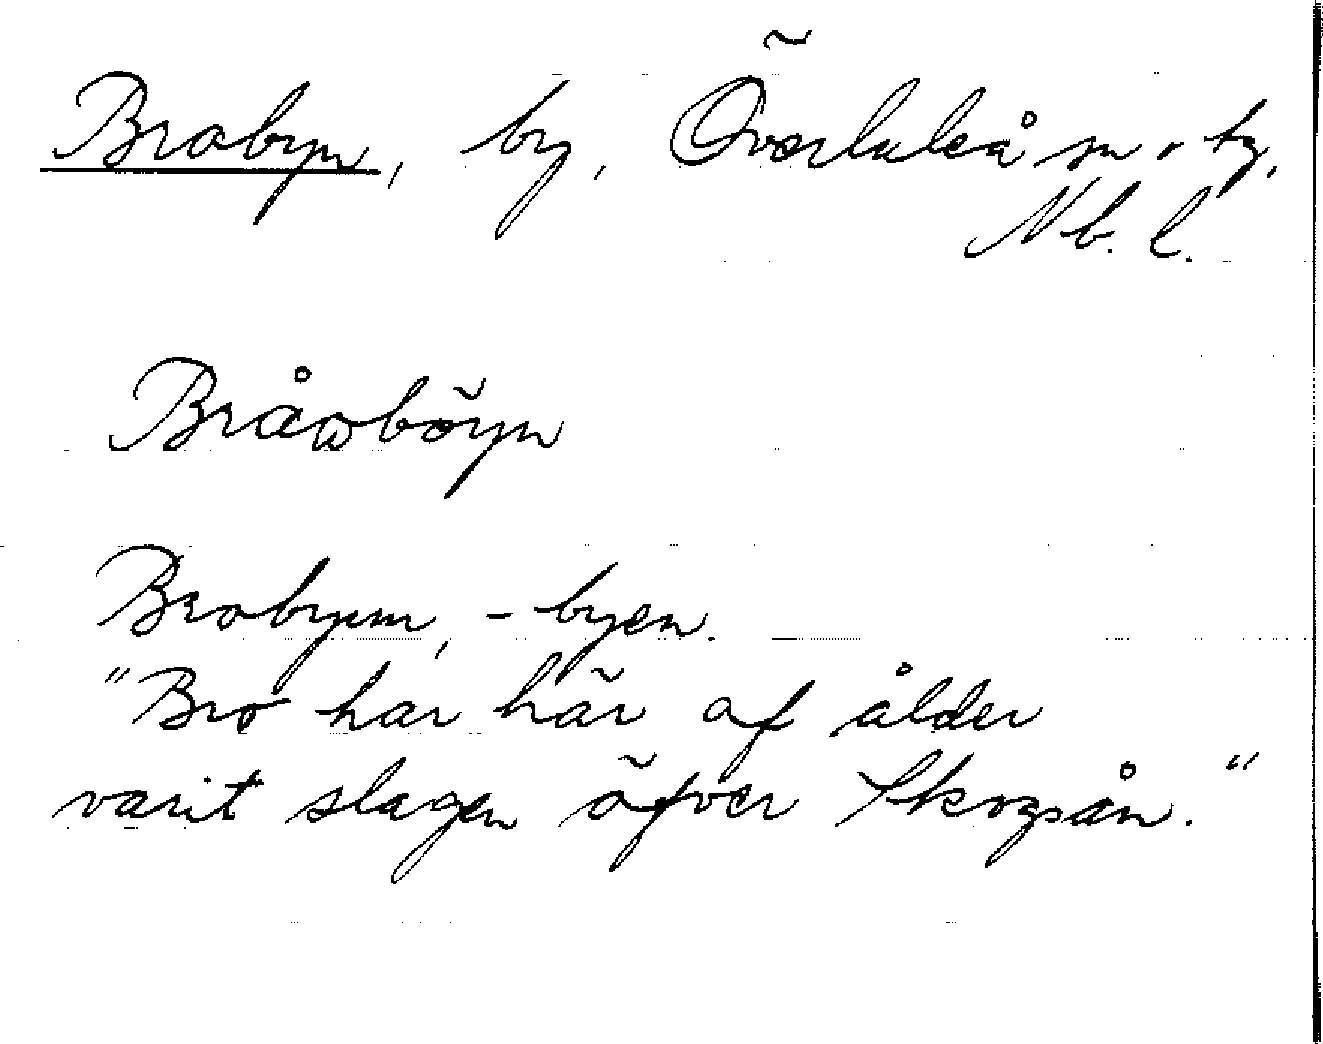 Brobyn, by, Överluleå sn o tg,
Nb. l.
Bråwböyn
Brobyn, -byen.
"Bro har här af ålder
varit slagen öfver Skogsån."